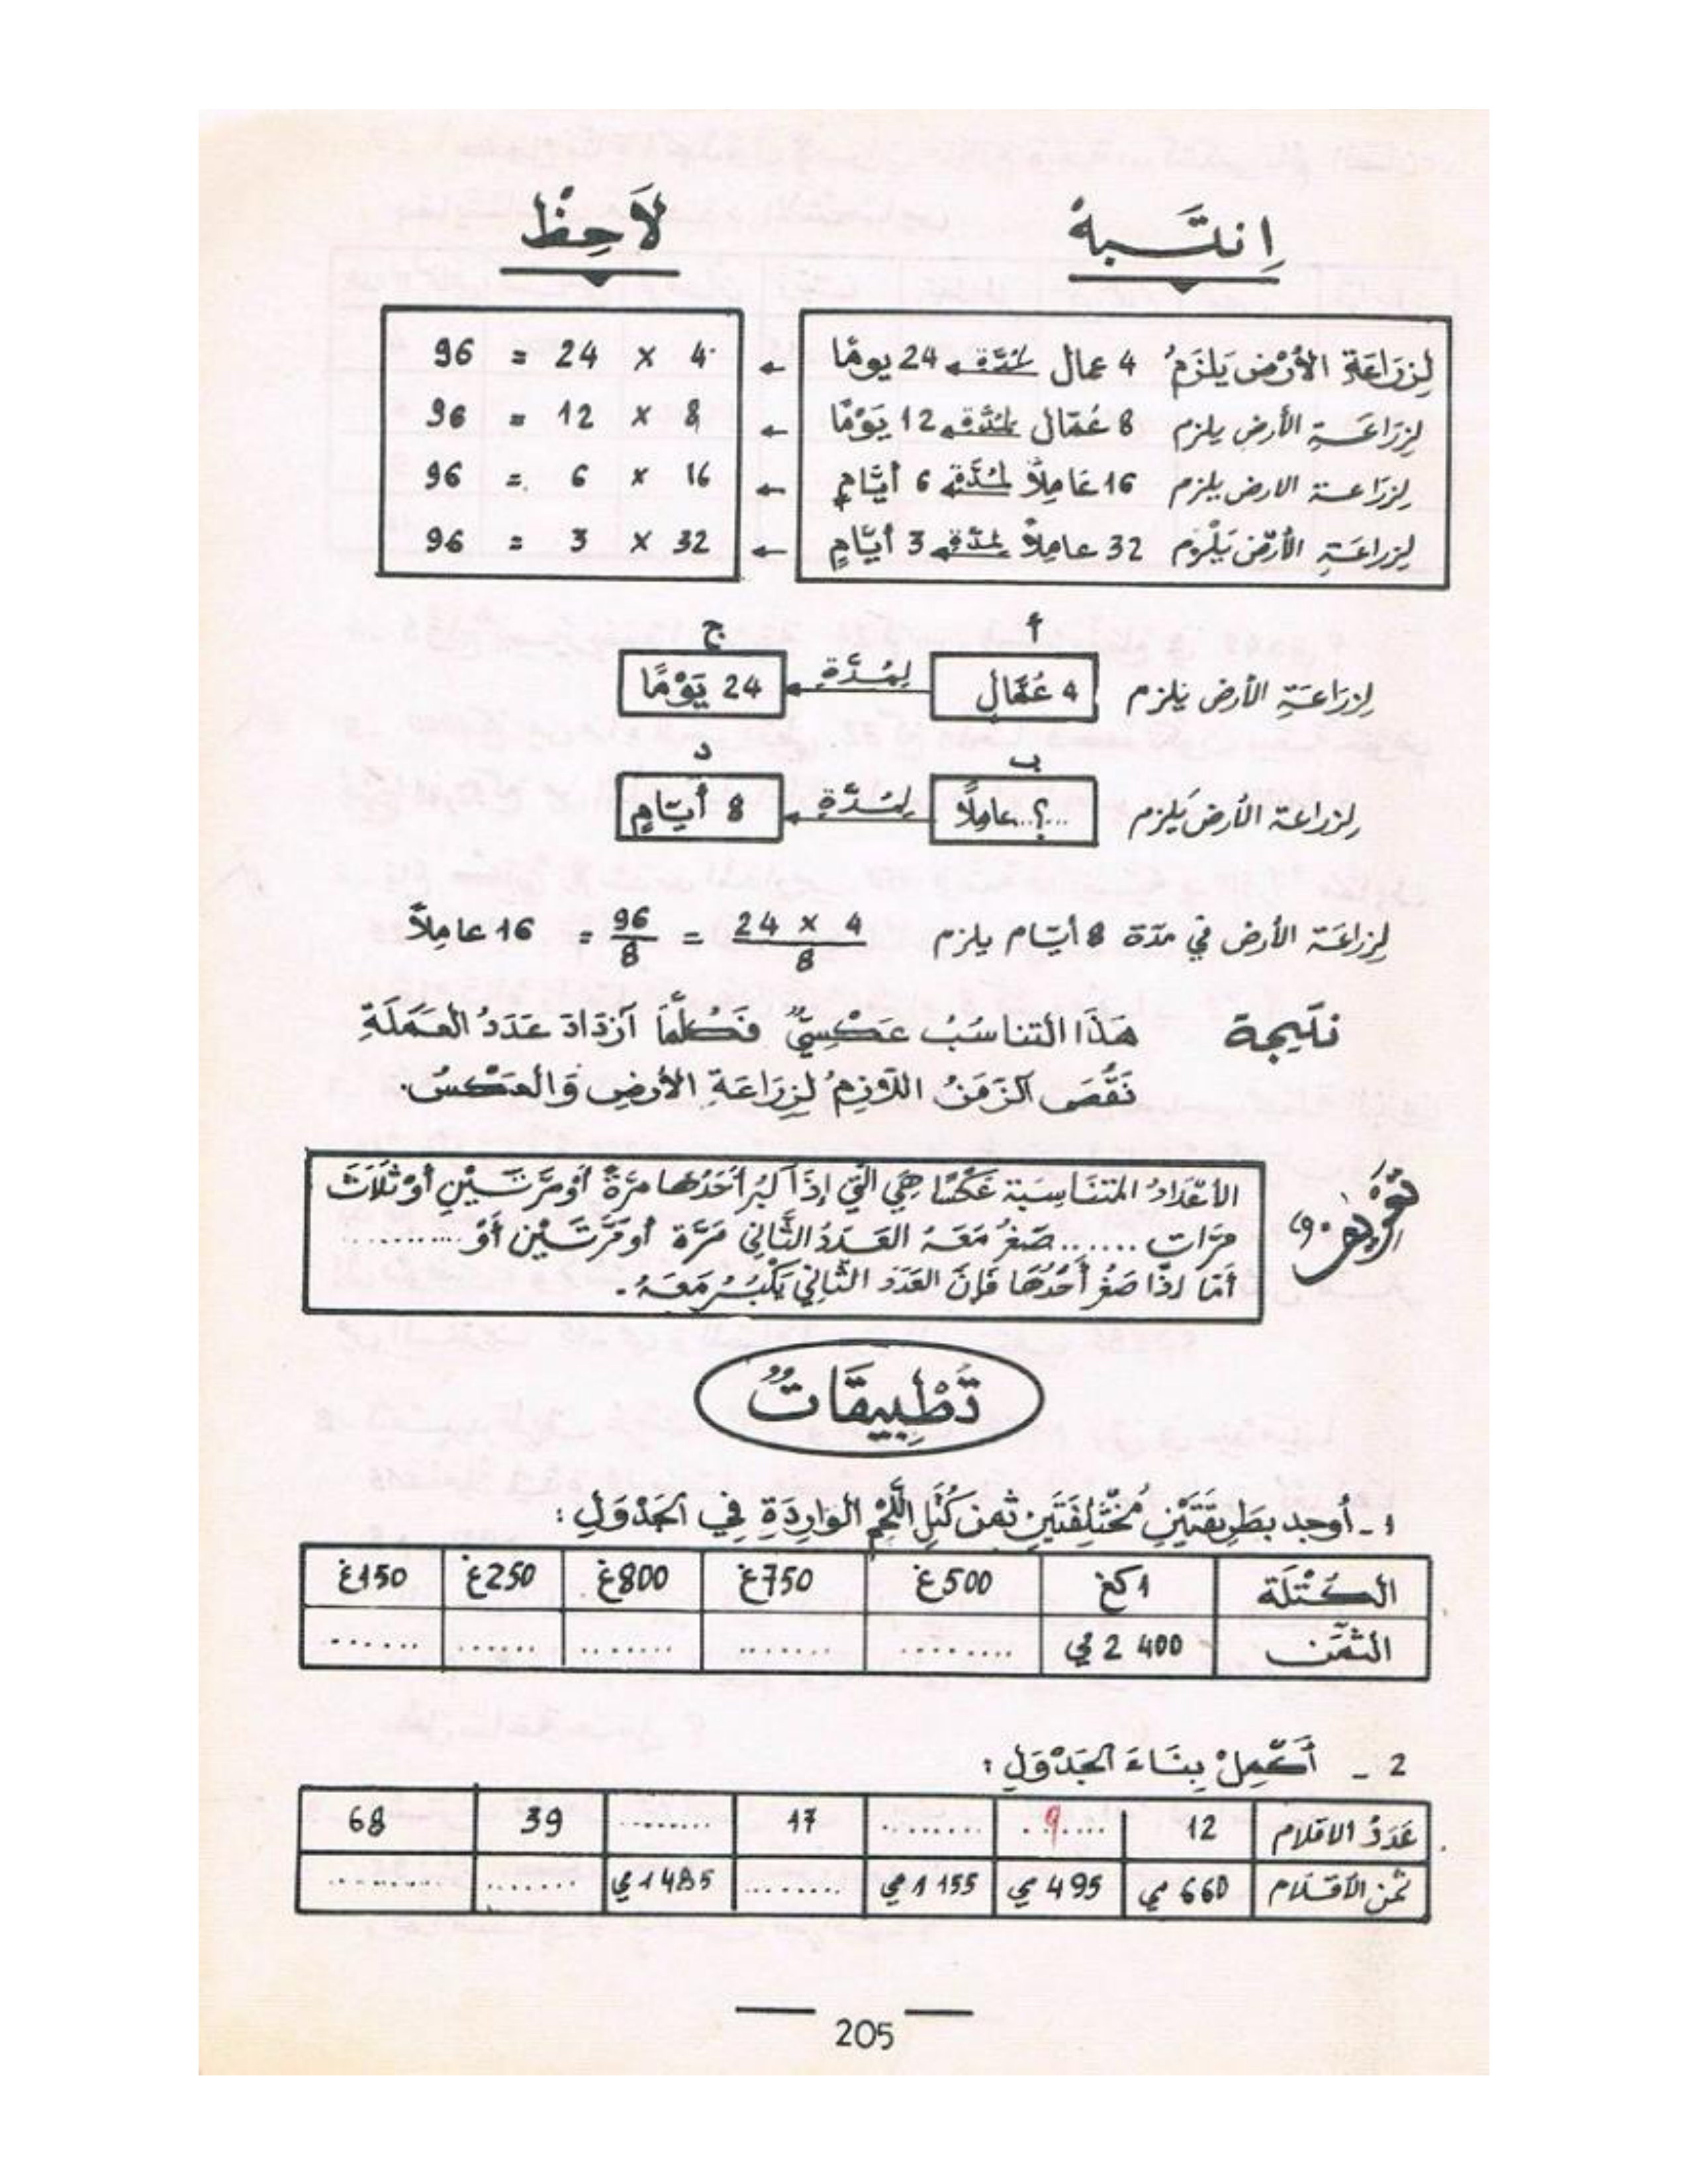 اِنتَبِهْ
لاَحِظْ
لِزِرَاعَةِ الأَرْضِ يَلْزَمُ 4 عمال لمُدَّة 24 يومًا ← 4 × 24 = 96
لِزِرَاعَةِ الأرض يلزم 8 عُمّال لمُدَّة 12 يَوْمًا ← 8 × 12 = 96
لِزِرَاعة الارض يلزم 16 عَامِلاً لمُدَّة 6 أيَّامٍ ← 16 × 6 = 96
لِزراعَةِ الأَرْضِ يَلْزم 32 عاملاً لمدّة 3 أيّامٍ ← 32 × 3 = 96
أ ج
لِزِرَاعَةِ الأرض يلزم 4 عُمَّال لِمُدَّةِ 24 يَوْمًا
ب د
لِزراعة الأرض يَلزم ...؟.. عاملًا لِمُدَّةِ 8 أيّامٍ
لِزِراعَة الأرض في مدّة 8 أيّام يلزم 24 × 4 / 8 = 96 / 8 = 16 عامِلاً
نتيجة هَذَا التناسُبُ عَكْسِيٌّ فَكُلَّمَا آزدَادَ عَدَدُ العَمَلَةِ
نَقُصَ الزَمَنُ اللاّزِمُ لِزِرَاعَةِ الأرضِ وَالعَكْسُ.
تَعْرِيفٌ
الأعْدَادُ المتنَاسِبَة عَكْسًا هِيَ الَّتِي إذَا كبُر أحَدُهَا مرَّةً أوْ مَرَّتَيْنِ أوْ ثَلَاثَ
مرّات ...... صَغُرَ مَعَهُ العَدَدُ الثَّانِي مَرَّة أو مَرَّتَيْن أَوْ ..........
أمّا إذَا صَغُرَ أَحَدُهَا فَإنَ العَدَد الثّانِي يَكْبُرُ مَعَهُ.
تَطْبِيقَاتٌ
1 - أوجد بطَرِيقَتَيْنِ مُخْتَلِفَتَيْنِ ثَمَن كُتَلِ اللَّحْمِ الوارِدَةِ فِي الجَدْوَلِ :
الكُتْلَة 1 كغ 500 غ 750 غ 800 غ 250 غ 150 غ
الثَّمَن 2 400 مي ........ ....... ....... ...... ......
2 - أَكْمِلْ بِنَاءَ الجَدْوَلِ :
عَدَدُ الاقلام 12 9 ........ 17 ........ 39 68
ثمن الأقلام 660 مي 495 مي 1 155 مي ........ 1 485 مي ....... .........
205